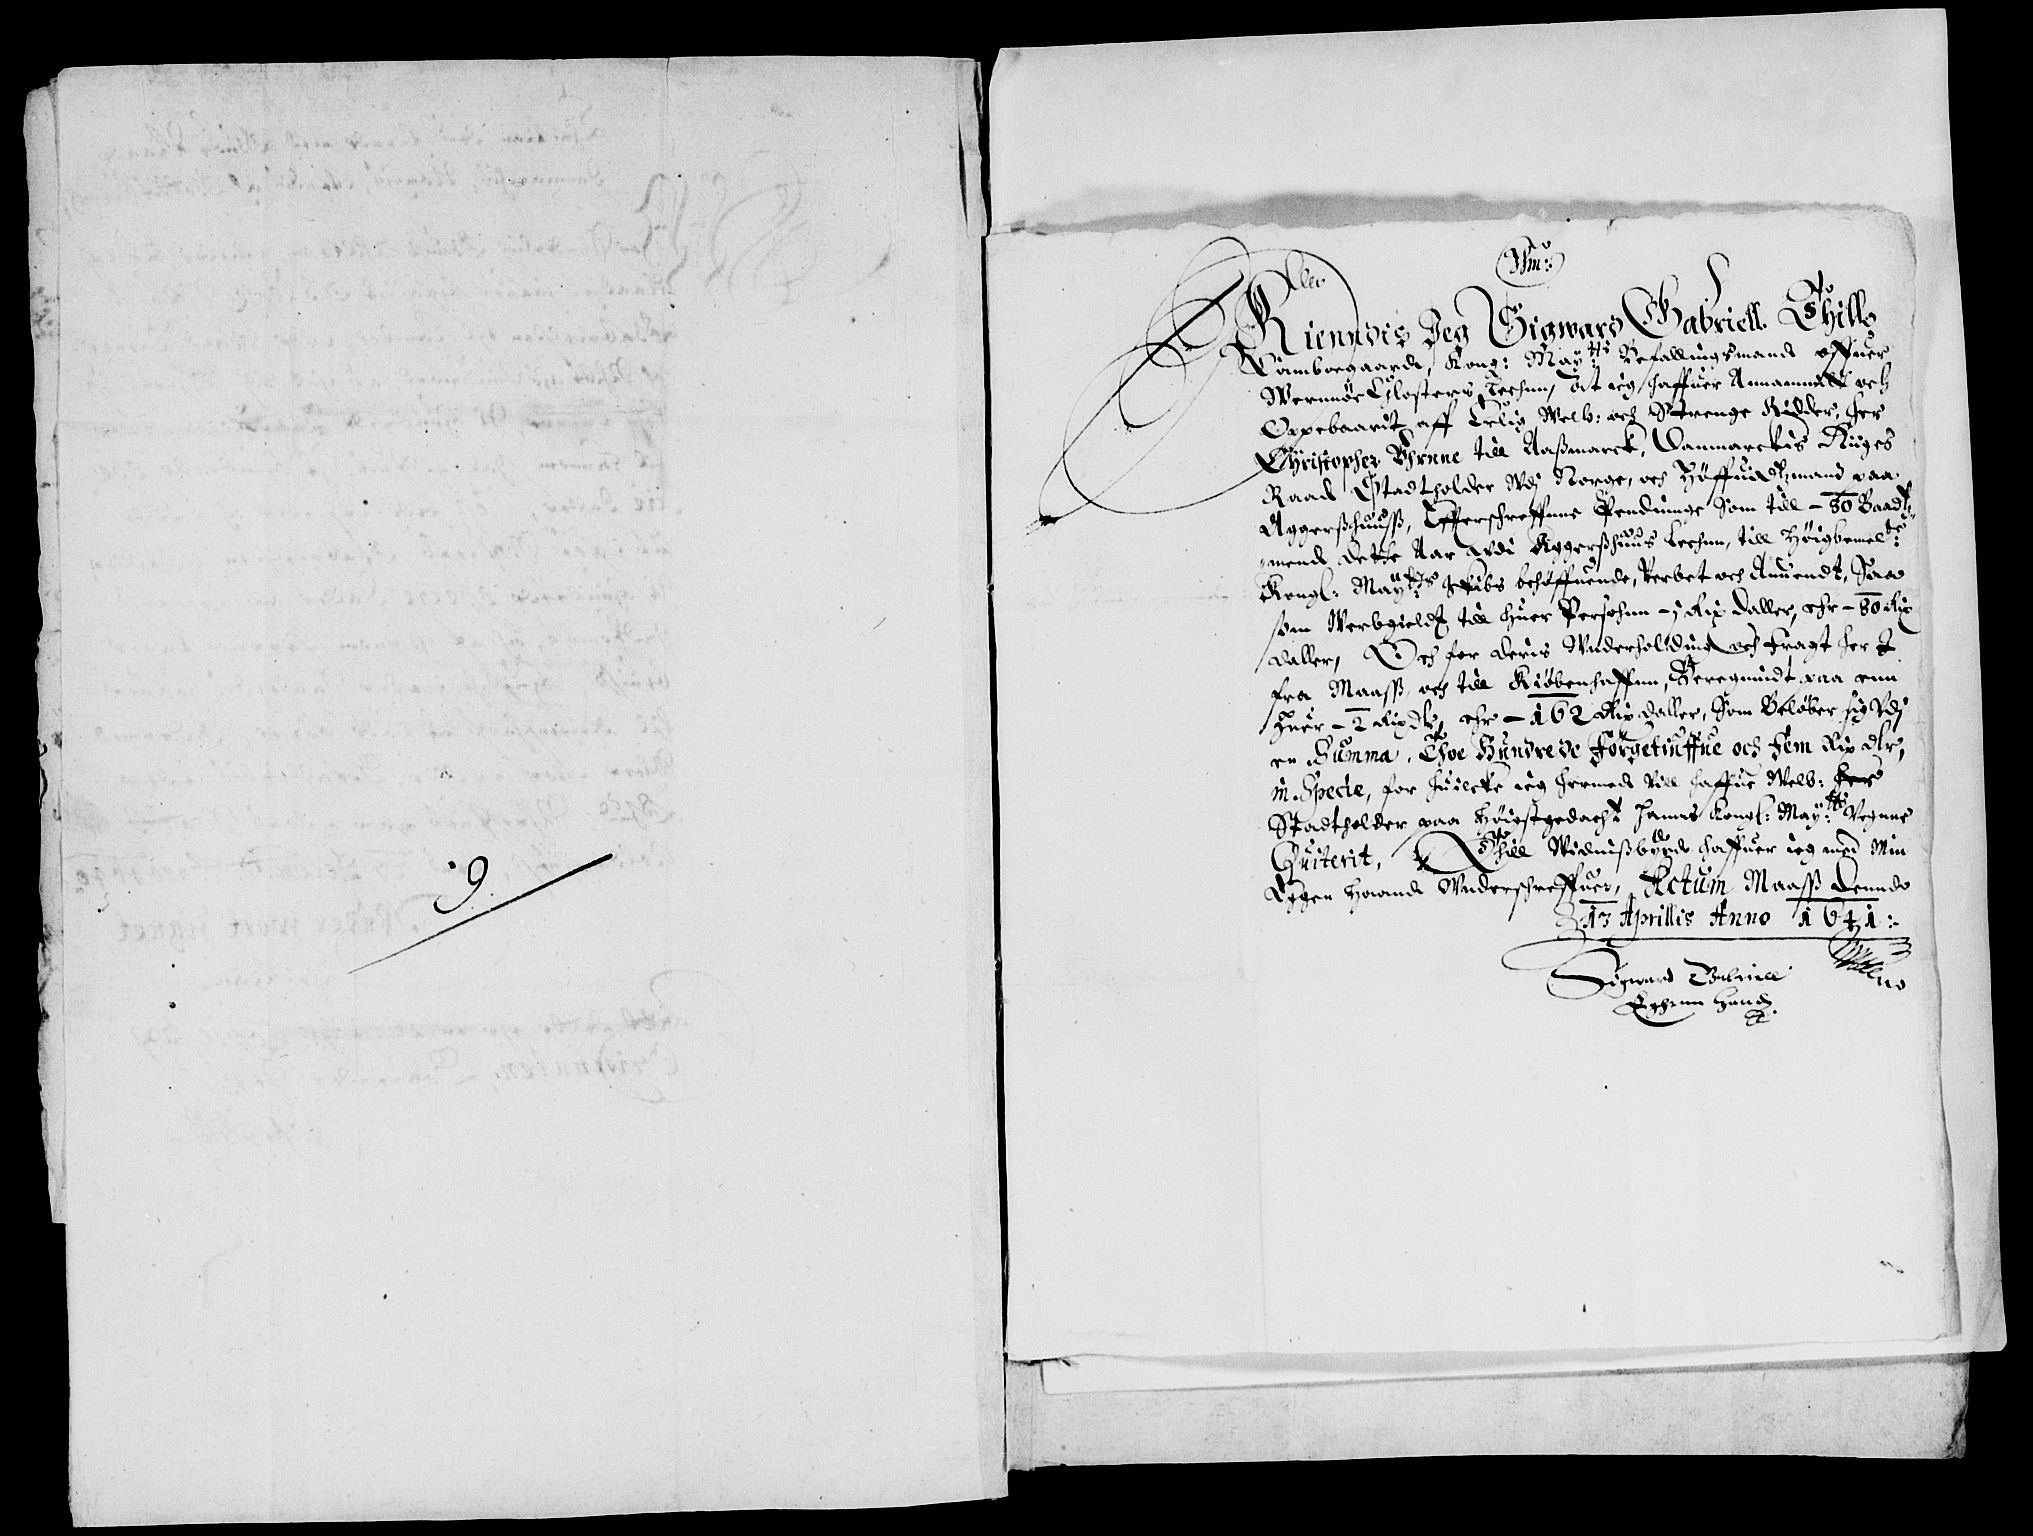 9.
No 1m:
Kienndis Jeg Sigward Gabriell Thill
Tamboegaard, Kong: Maytts Befallingsmand offuer
Wernnøe Closters Leehnn, At ieg haffuer Annammitt och
Oppebaaritt aff Erlig Welb: och Strenge Ridder, her
Christopher Vhrnne till Aaßmarck, Danmarckis Riges
Raad Stadtholder Vdj Norge, och Höffuidtzmand paa
Aggerßhuuß, Effterschreffne Pendinnge Som till - 80 Baadtz
mend dette Aar vdi Aggerßhuus Leehnn, till Höigbemelte
Kongl: Maytts Skibs behöffuende, Verbet och Anuendt, Saa
som Verbgieldt till huer Persohnn - 1 Rix Daller, ehr - 80 Rix
daller, Och for deris Vnderholdning och Fragt her
fra Maaß och till Kiöbenhaffnn, Beregnndt paa enn
Huer - 2 Rixdlr, ehr - 162 Rix Daller, Som Belöber sig Vdj
en Summa, Thoe Hundrede Förgetiuffue och Fem Rix dlr,
in Specie, for huilcke ieg hermed vill haffue Welb: her
Stadtholder paa Höigstgedacht hanns Kongl: Maytts Vegnne
Quiterit, Thill Widnißbyrd haffuer ieg med Min
Egen Haand Vnderschreffuet, Actum Maaß Dennd
13 Aprillis Anno 1641:
Sigward Gabriell
Eghenn Handt